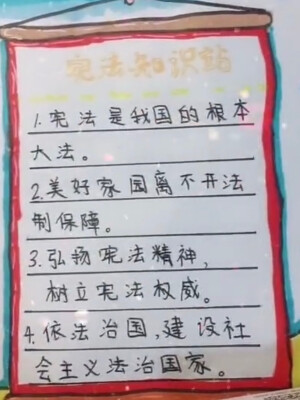 宪法知识站
1.宪法是我国的根本
大法。
2.美好家园离不开法
制保障。
3.弘扬宪法精神,
树立宪法权威。
4.依法治国,建设社
会主义法治国家。